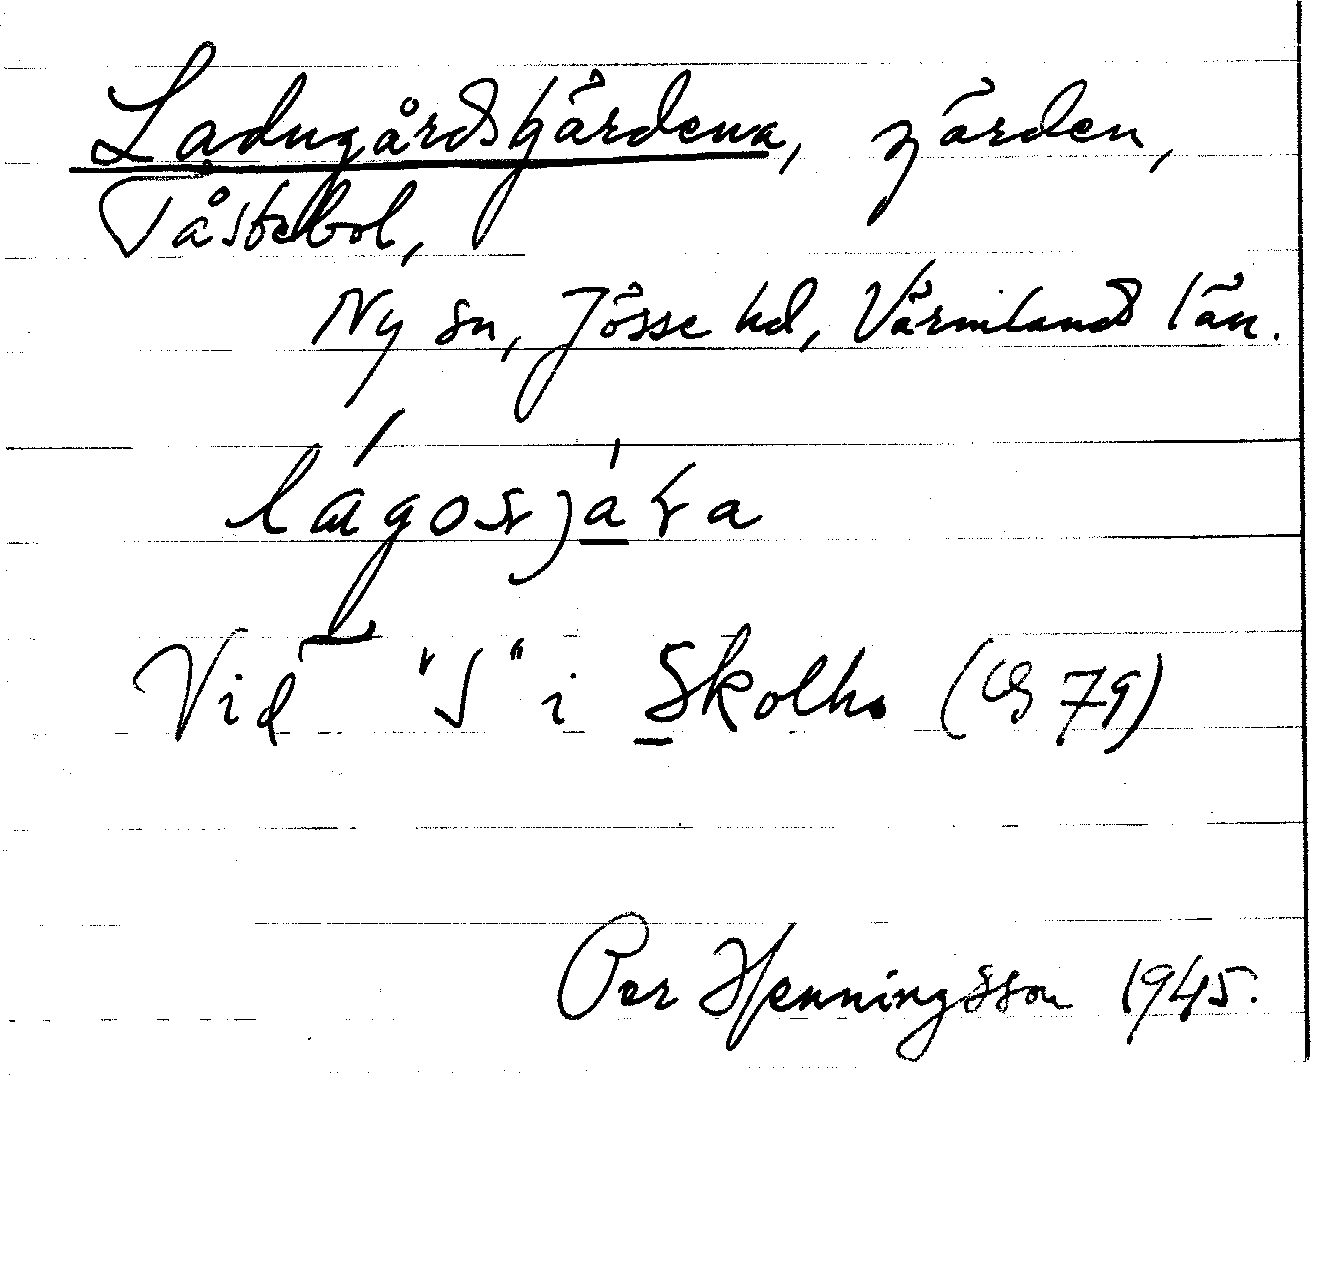 Ladugårdsgärdena, gärden,
Tåstebol,
Ny sn, Jösse hd, Värmlands län.
Vid "S" i Skolh. (GS 79)
Per Henningsson 1945.